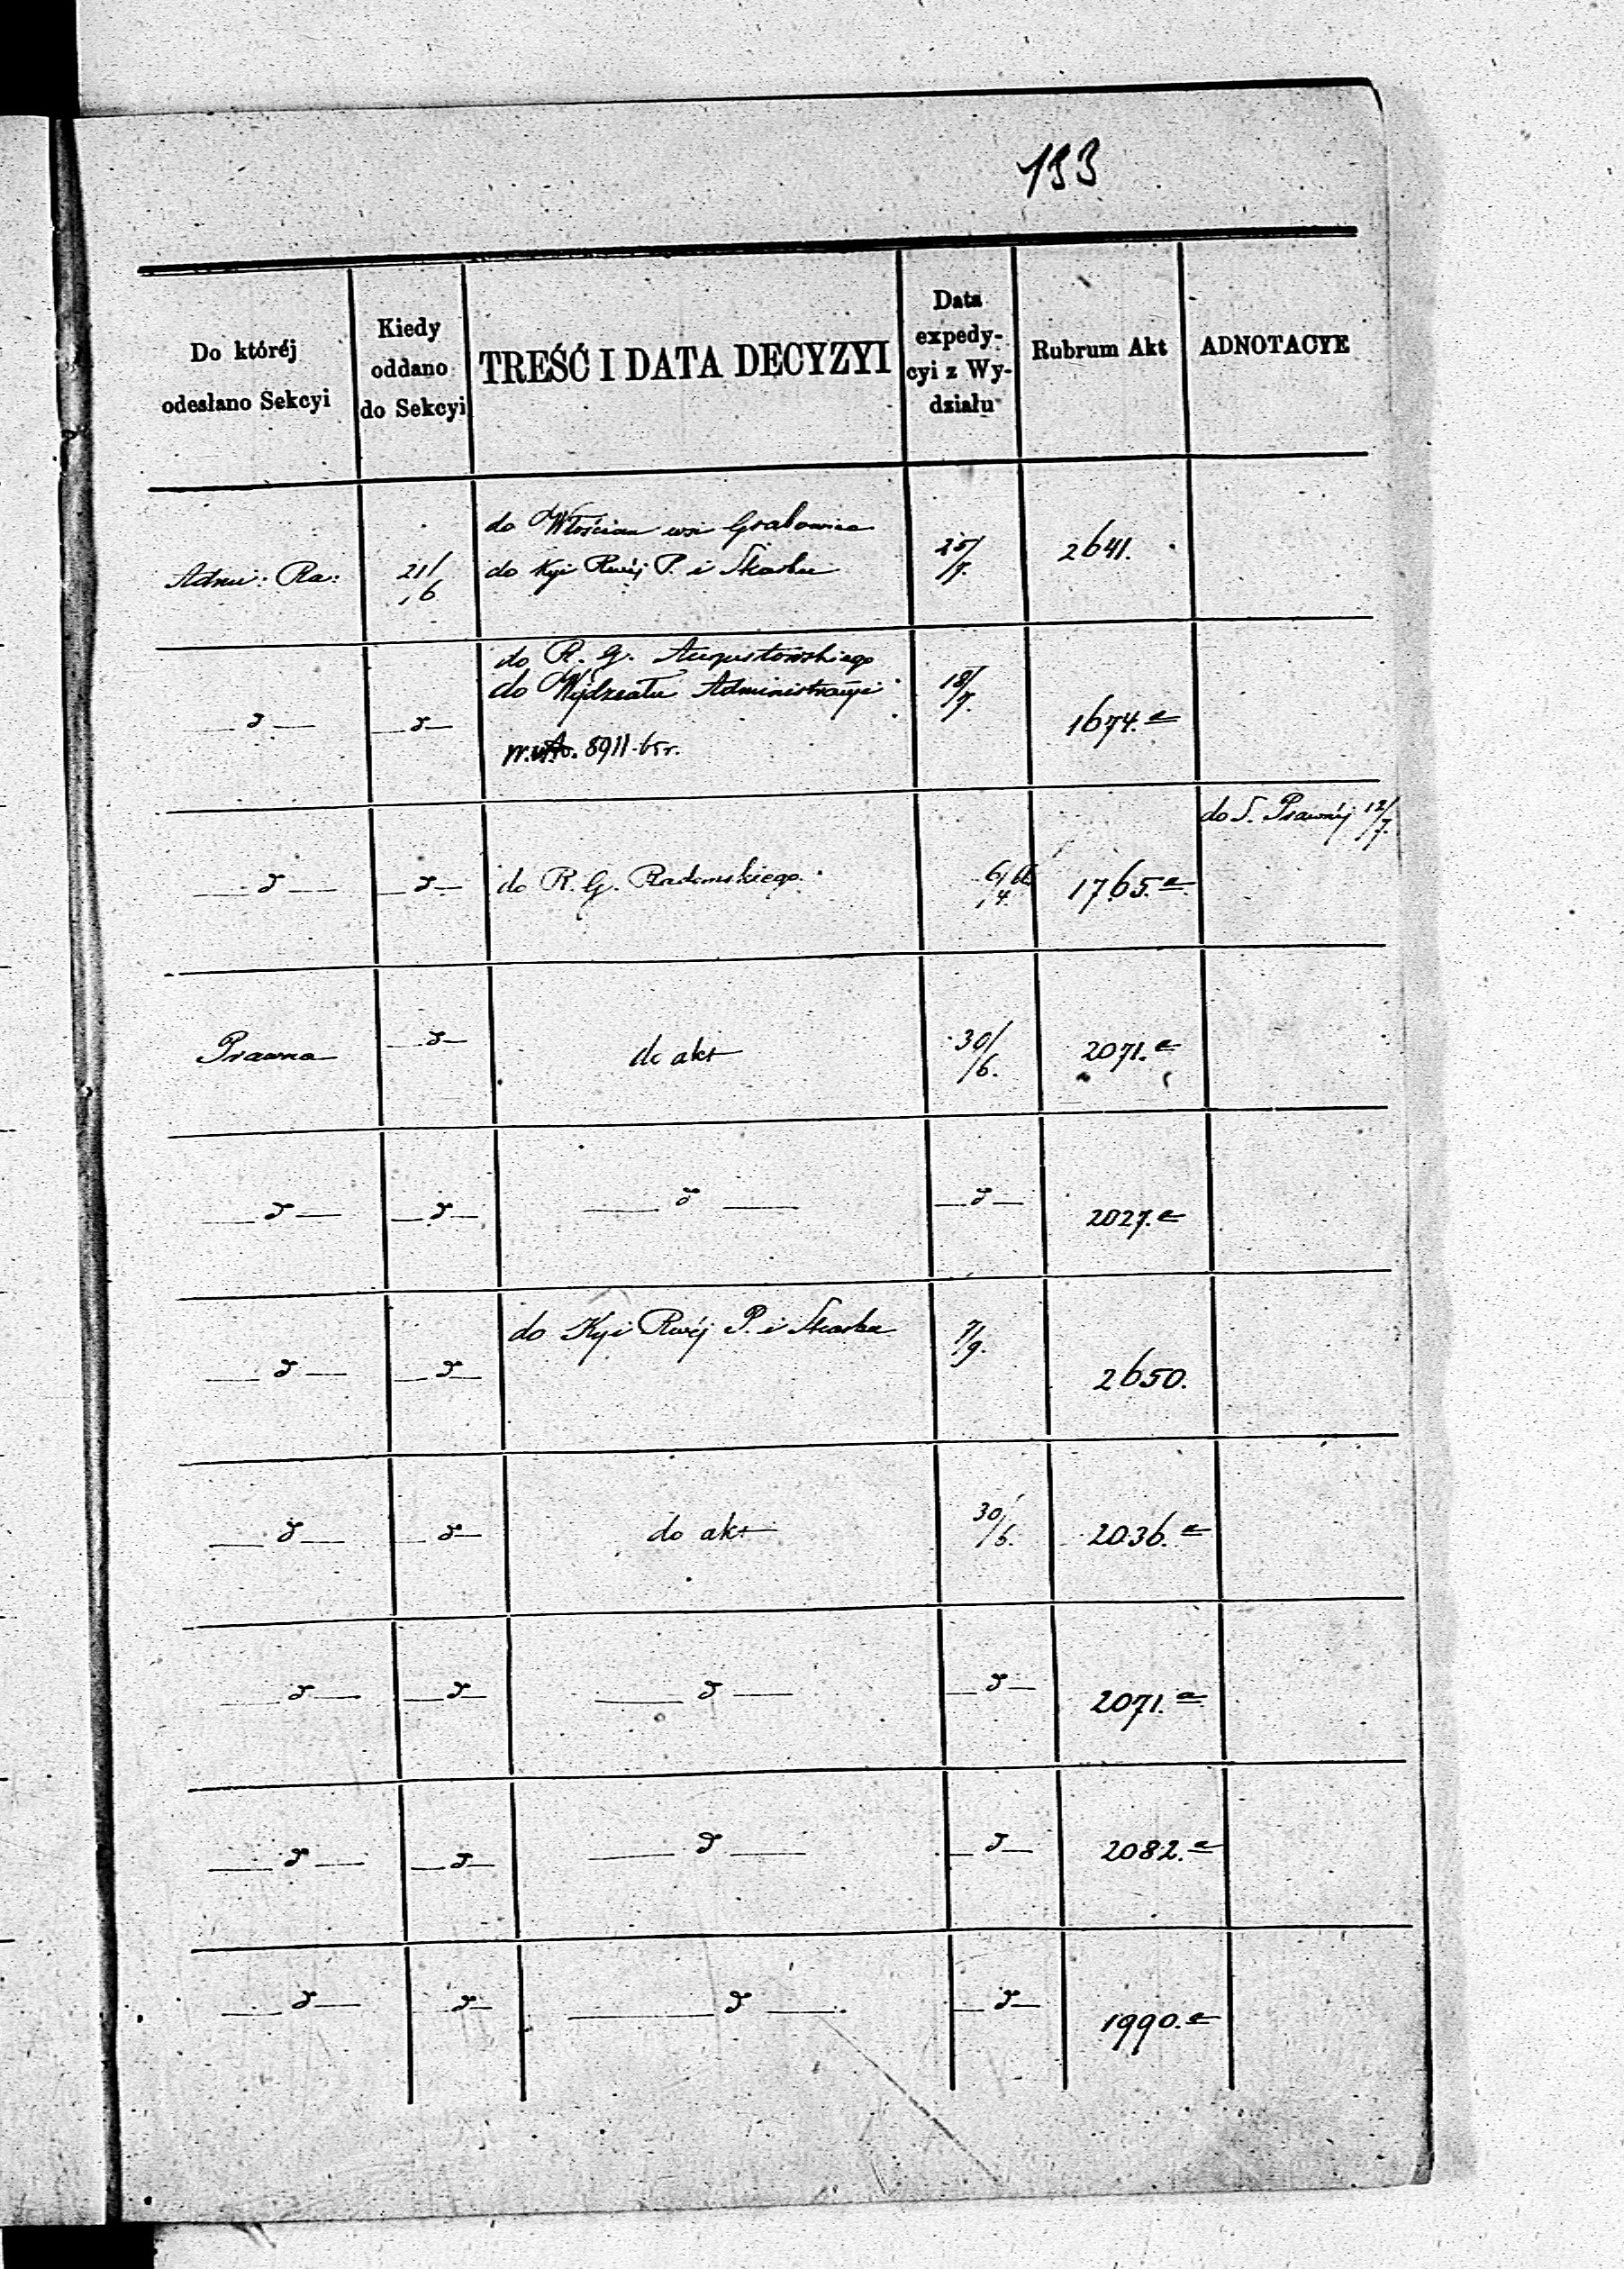 193
Do któréj odesłano Sekcyi
Kiedy oddano do Sekcyi
TREŚĆ I DATA DECYZYI
Data expedy-cyi z Wy-działu
Rubrum Akt
ADNOTACYE
do Włościan wsi Grabowiec
25/7.
2641.
Admi: Ra:
21/6
do Kyi Rwéj P. i Skarbu
do R. G. Augustowskiego
do Wydziału Administracyi
18/7.
1674. a
8911
do S. Prawnéj 12/7.
do R. G. Radomskiego.
1765. a
Prawna
do akt
30/6.
2071. a
2027. a
do Kyi Rwéj P. i Skarbu
7/9.
2650.
do akt
30/6.
2036. a
2071. a
2082. a
1990. a